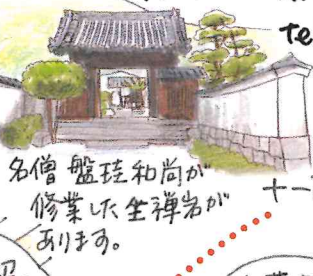 te
名僧 盤珪和尚が
修業した坐禅岩が
あります。
十一